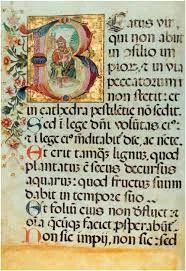 Beatus vir,
qui non abiit
in cōsilio im
piorū, et in via
peccatorum
non stetit: et
in cathedra pestilētie nō sedit.
Sed ī lege dm̄ volūtas eꝰ:
et ī lege eꝰ meditabit die, ac nocte.
Et erit tamq̄ lignuʒ, quod
plantatū ē secus decursus
aquaruʒ: quod fructuʒ suum
dabit in tempore suo
Et foliū eius non dfluet: et
oīa quęcūqʒ faciet psperabūt.
Non sic impij, non sic: sed